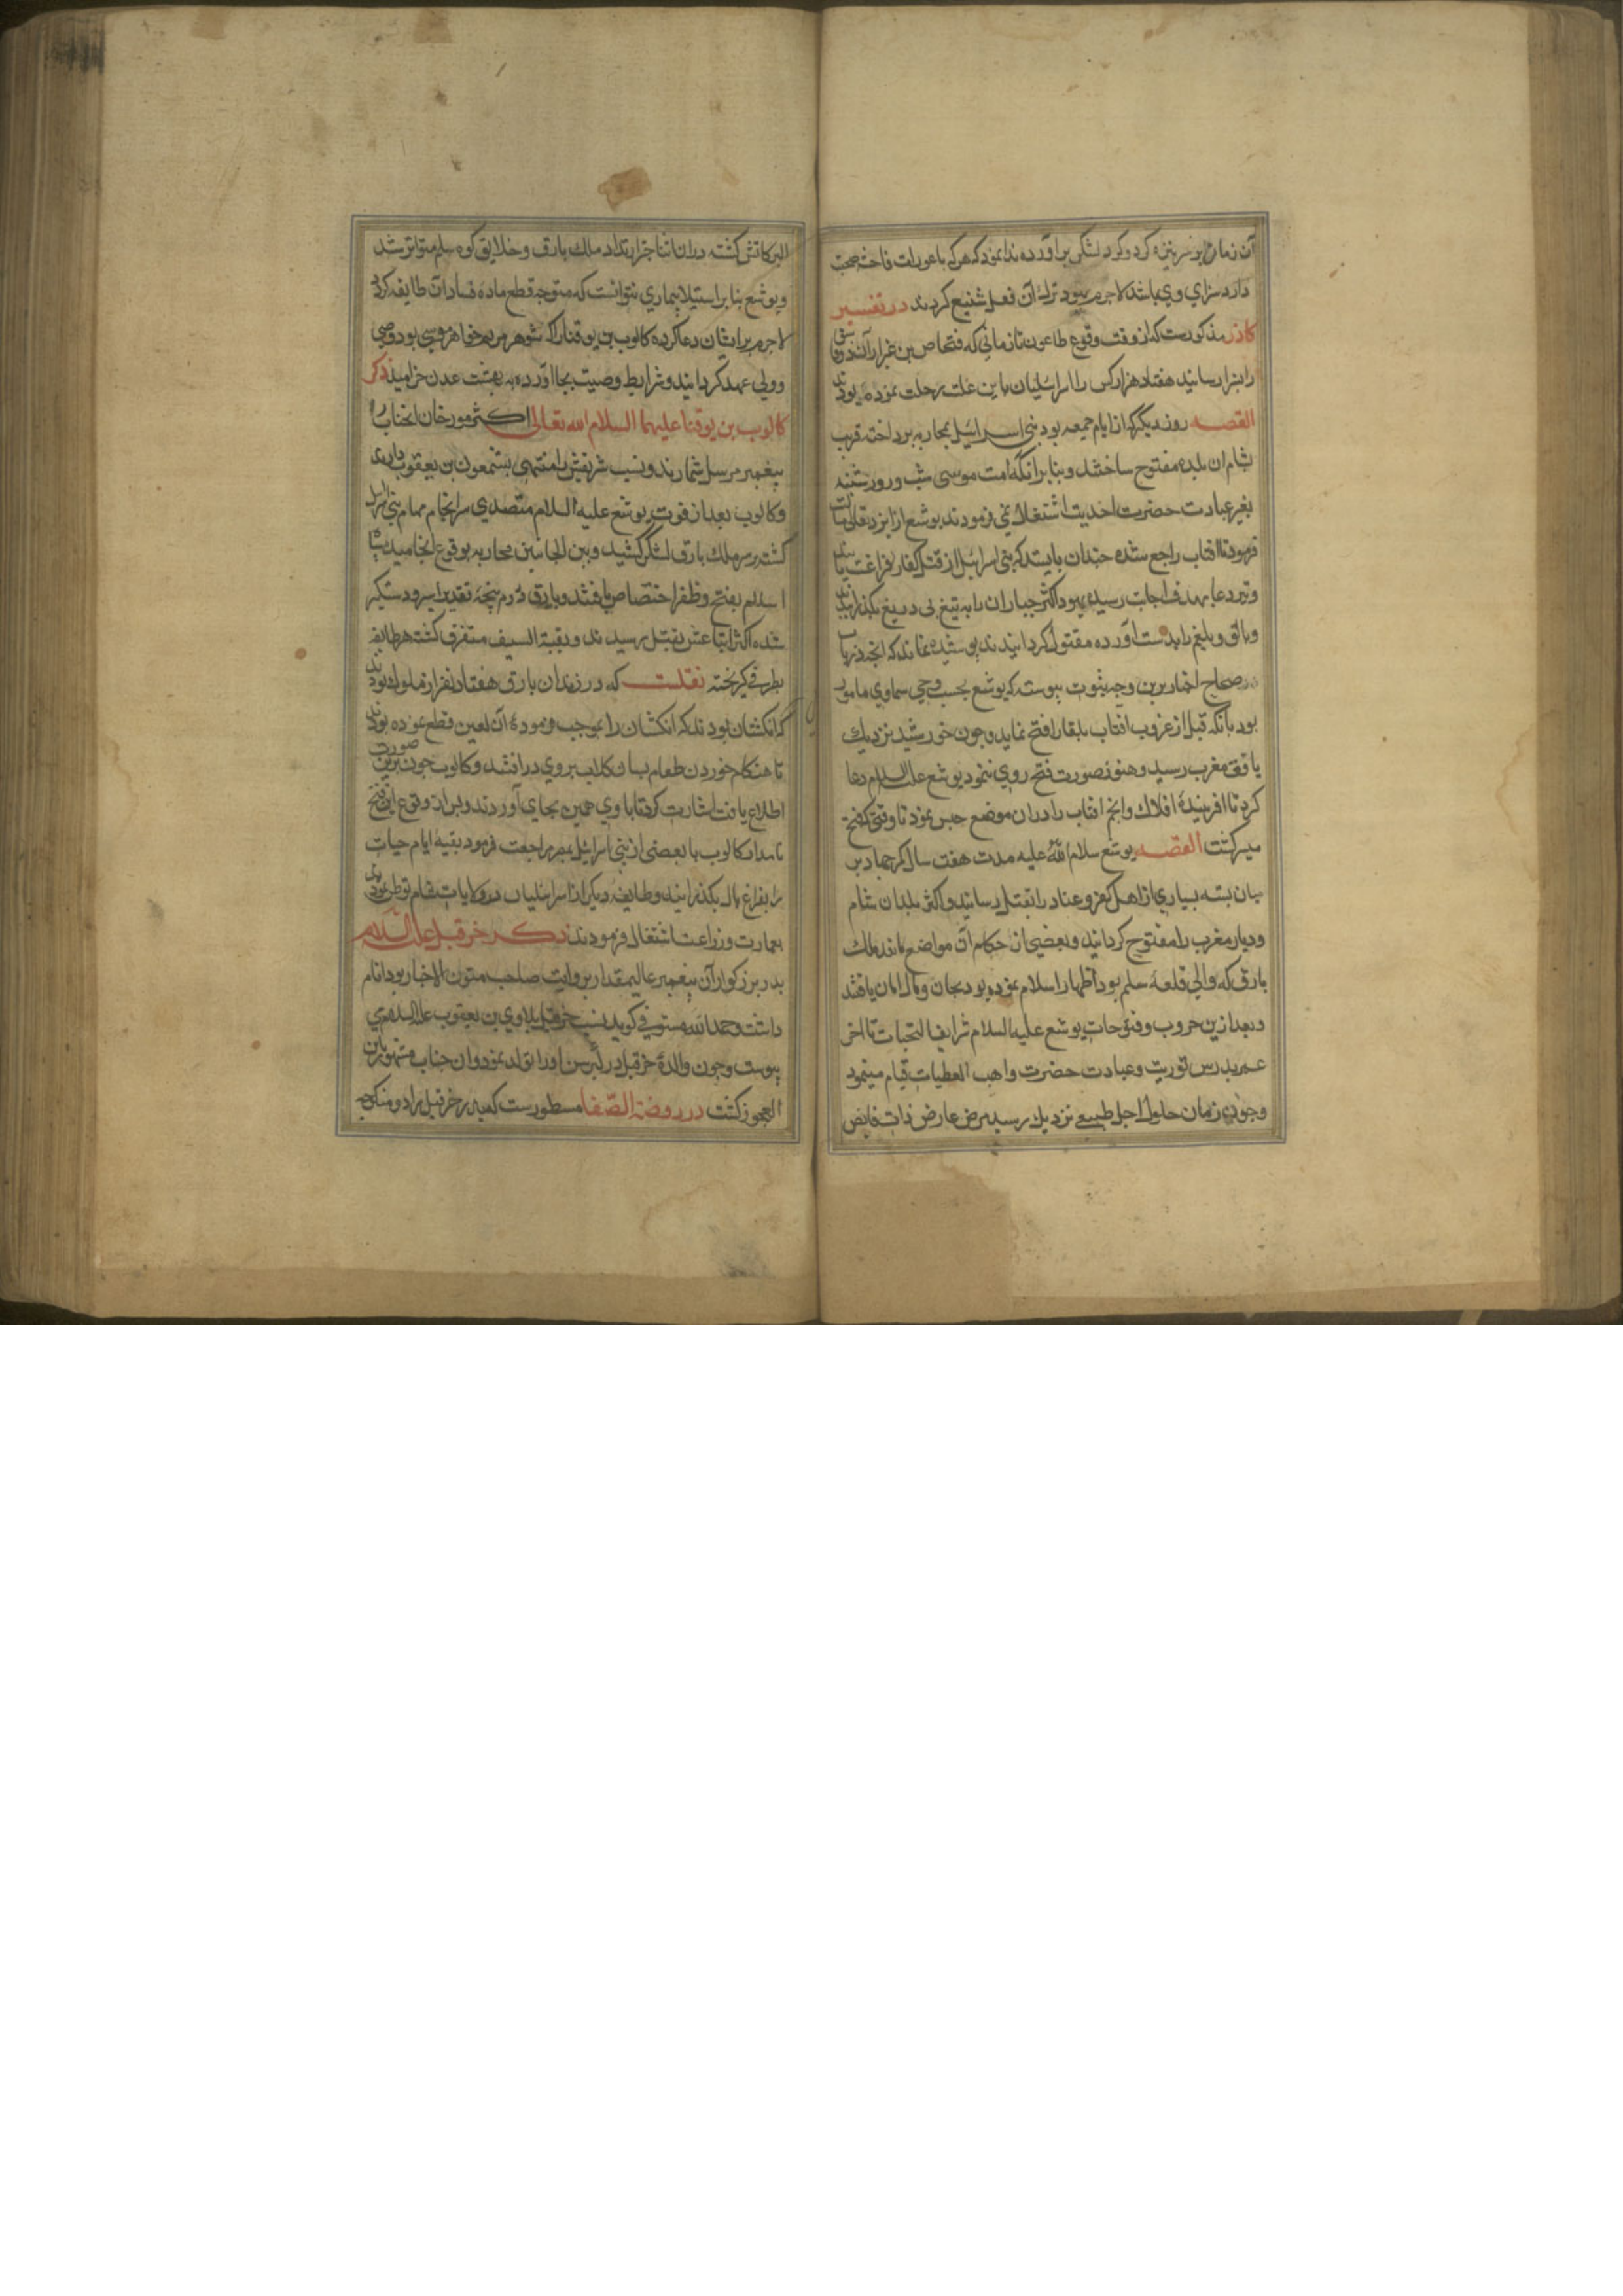 آن زمان بر سر نیزه کرد و کرد لشکر برآورده ندا نمود که هرکه با عورات فاحشه صحبت
دارد سزای وی باشد لاجرم یهود ترک آن فعل شنیع کردند در تفسیر
کاذر مذکورست که از وقت وقوع طاعون تا زمانی که فنحاص بن غیزار آن دو
را بنزا رسانید هفتاد هزار کس را اسرائیلیان باین علت رحلت نموده بودند
القصه روز دیگر که از ایام جمعه بود بنی اسرائیل بمحاربه پرداخته قریب
بشام آن بلده مفتوح ساختند و بنا بر آنکه امت موسی شب و روز شنبه
بغیر عبادت حضرت احدیت اشتغال نمی فرمودند یوشع از ایزد تعالی
فرمود تا افتاب راجع شده چندان بایستد که بنی اسرائیل از قتل کفار فراغت یابند
و تیر دعا بهدف اجابت رسیده یهود اکثر جباران را به تیغ بی دریغ بگذرانیدند
و بالق و بلعم را بدست آورده مقتول کردانیدند پوشیده نماند که انچه در باب
صحاح اخبار برین وجه بثبوت پیوسته که یوشع بحسب وحی سماوی مامور
بود بآنکه قبل از غروب افتاب بلقا را فتح نماید و چون خورشید نزدیک
بافق مغرب رسید و هنوز صورت فتح روی ننمود یوشع علیه السلام دعا
کرد تا افرینندهٔ افلاک و انجم افتاب را دران موضع حبس نمود تا وقتی که فتح
میسر کشت القصه یوشع سلام الله علیه مدت هفت سال کمر جهاد بر
میان بسته بسیاری از اهل کفر و عناد را بقتل رسانید و اکثر بلدان شام
و دیار مغرب را مفتوح کردانید و بعضی از حکام آن مواضع مانند ملک
بارق که والی قلعهٔ سلم بود اظهار اسلام نموده بود بجان و مال امان یافتند
و بعد ازین حروب و فتوحات یوشع علیه السلام شرایف التحیات تا اخر
عمر بدرس توریت و عبادت حضرت واهب العطیات قیام مینمود
و چون زمان حلول اجل طبیعی نزدیک رسید مرض عارض ذات فایض
البرکاتش کشته دران اثنا خبر ارتداد ملک بارق و خلایق کوه سلم متواتر شد
و یوشع بنا بر استیلا بیماری نتوانست که متوجه قطع ماده فساد آن طایفه کردد
لاجرم بر ایشان دعا کرده کالوب بن یوقنا را که شوهر مریم خواهر موسی بود وصی
و ولی عهد کردانید و شرایط وصیت بجا آورده به بهشت عدن خرامید ذکر
کالوب بن یوقنا علیهما السلام الله تعالی اکثر مورخان انجناب را
پیغمبر مرسل شمارند و نسب شریفش را منتهی بشمعون بن یعقوب دارند
و کالوب بعد از فوت یوشع علیه السلام متصدی سرانجام مهام بنی اسرائیل
کشته بر سر ملک بارق لشکر کشید و بین الجانبین محاربه بوقوع انجامیده
اسلام بفتح و ظفر اختصاص یافتند و بارق در پنجهٔ تقدیر اسیر و دستکیر
شده اکثر اتباعش بقتل رسیدند و بقیة السیف متفرق کشته هر طایفه
بطرفی کریختند نقلست که در زندان بارق هفتاد نفر از ملوک بودند
که انکشتان بودند که انکشتان را بموجب فرمودهٔ آن لعین قطع نموده بودند
تا هنکام خوردن طعام بسان کلاب بروی در افتند و کالوب چون برین صورت
اطلاع یافت اشارت کرد تا با وی همین بجای آوردند و پس از وقوع این فتح
نامدار کالوب با بعضی از بنی اسرائیل بمصر مراجعت فرمود بقیه ایام حیات
را بفراغ بال بکذرانید و طایفه دیکر از اسرائیلیان در ولایات شام توطن نمودند
بعمارت و زراعت اشتغال فرمودند ذکر حزقیل علیه السلام
پدر بزرکوار آن پیغمبر عالیمقدار بروایت صاحب متون الاخبار بودا نام
داشت و حمدالله مستوفی کوید نسب حزقیل بلاوی بن یعقوب علیه السلام می
پیوست و چون والدهٔ حزقیل در کبر سن او را تولد نمود و آن جناب مشهور باین
العجوز کشت در روضة الصفا مسطورست که پدر حزقیل برا دو منکوحه